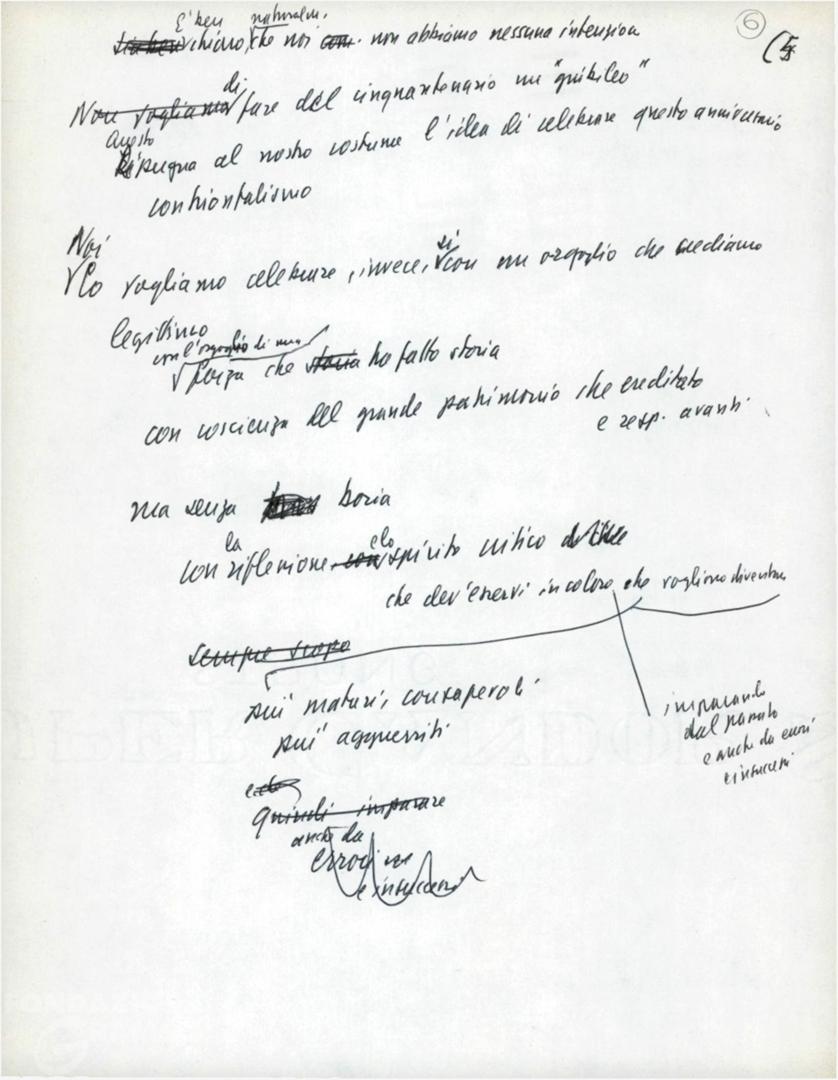 6
(5
E' ben naturalm.
sia ben chiaro, che noi com. non abbiamo nessuna intenzione
di
Non vogliamo fare del cinquantenario un "giubileo"
Questo
Ripugna al nostro costume l'idea di celebrare questo anniversario
con trionfalismo
Noi
Lo vogliamo celebrare, invece, sì con un orgoglio che crediamo
legittimo
con l'orgoglio di una
forza che storia ha fatto storia
con coscienza del grande patrimonio che ereditato
e resp. avanti
ma senza boria
la e lo
con riflessione con spirito critico
che dev'esservi in coloro che vogliono diventare
sempre scopo
più maturi, consapevoli
più agguerriti
imparando
dal passato
e anche da errori
e insuccessi
quindi imparare
anche da
errori
e insuccessi